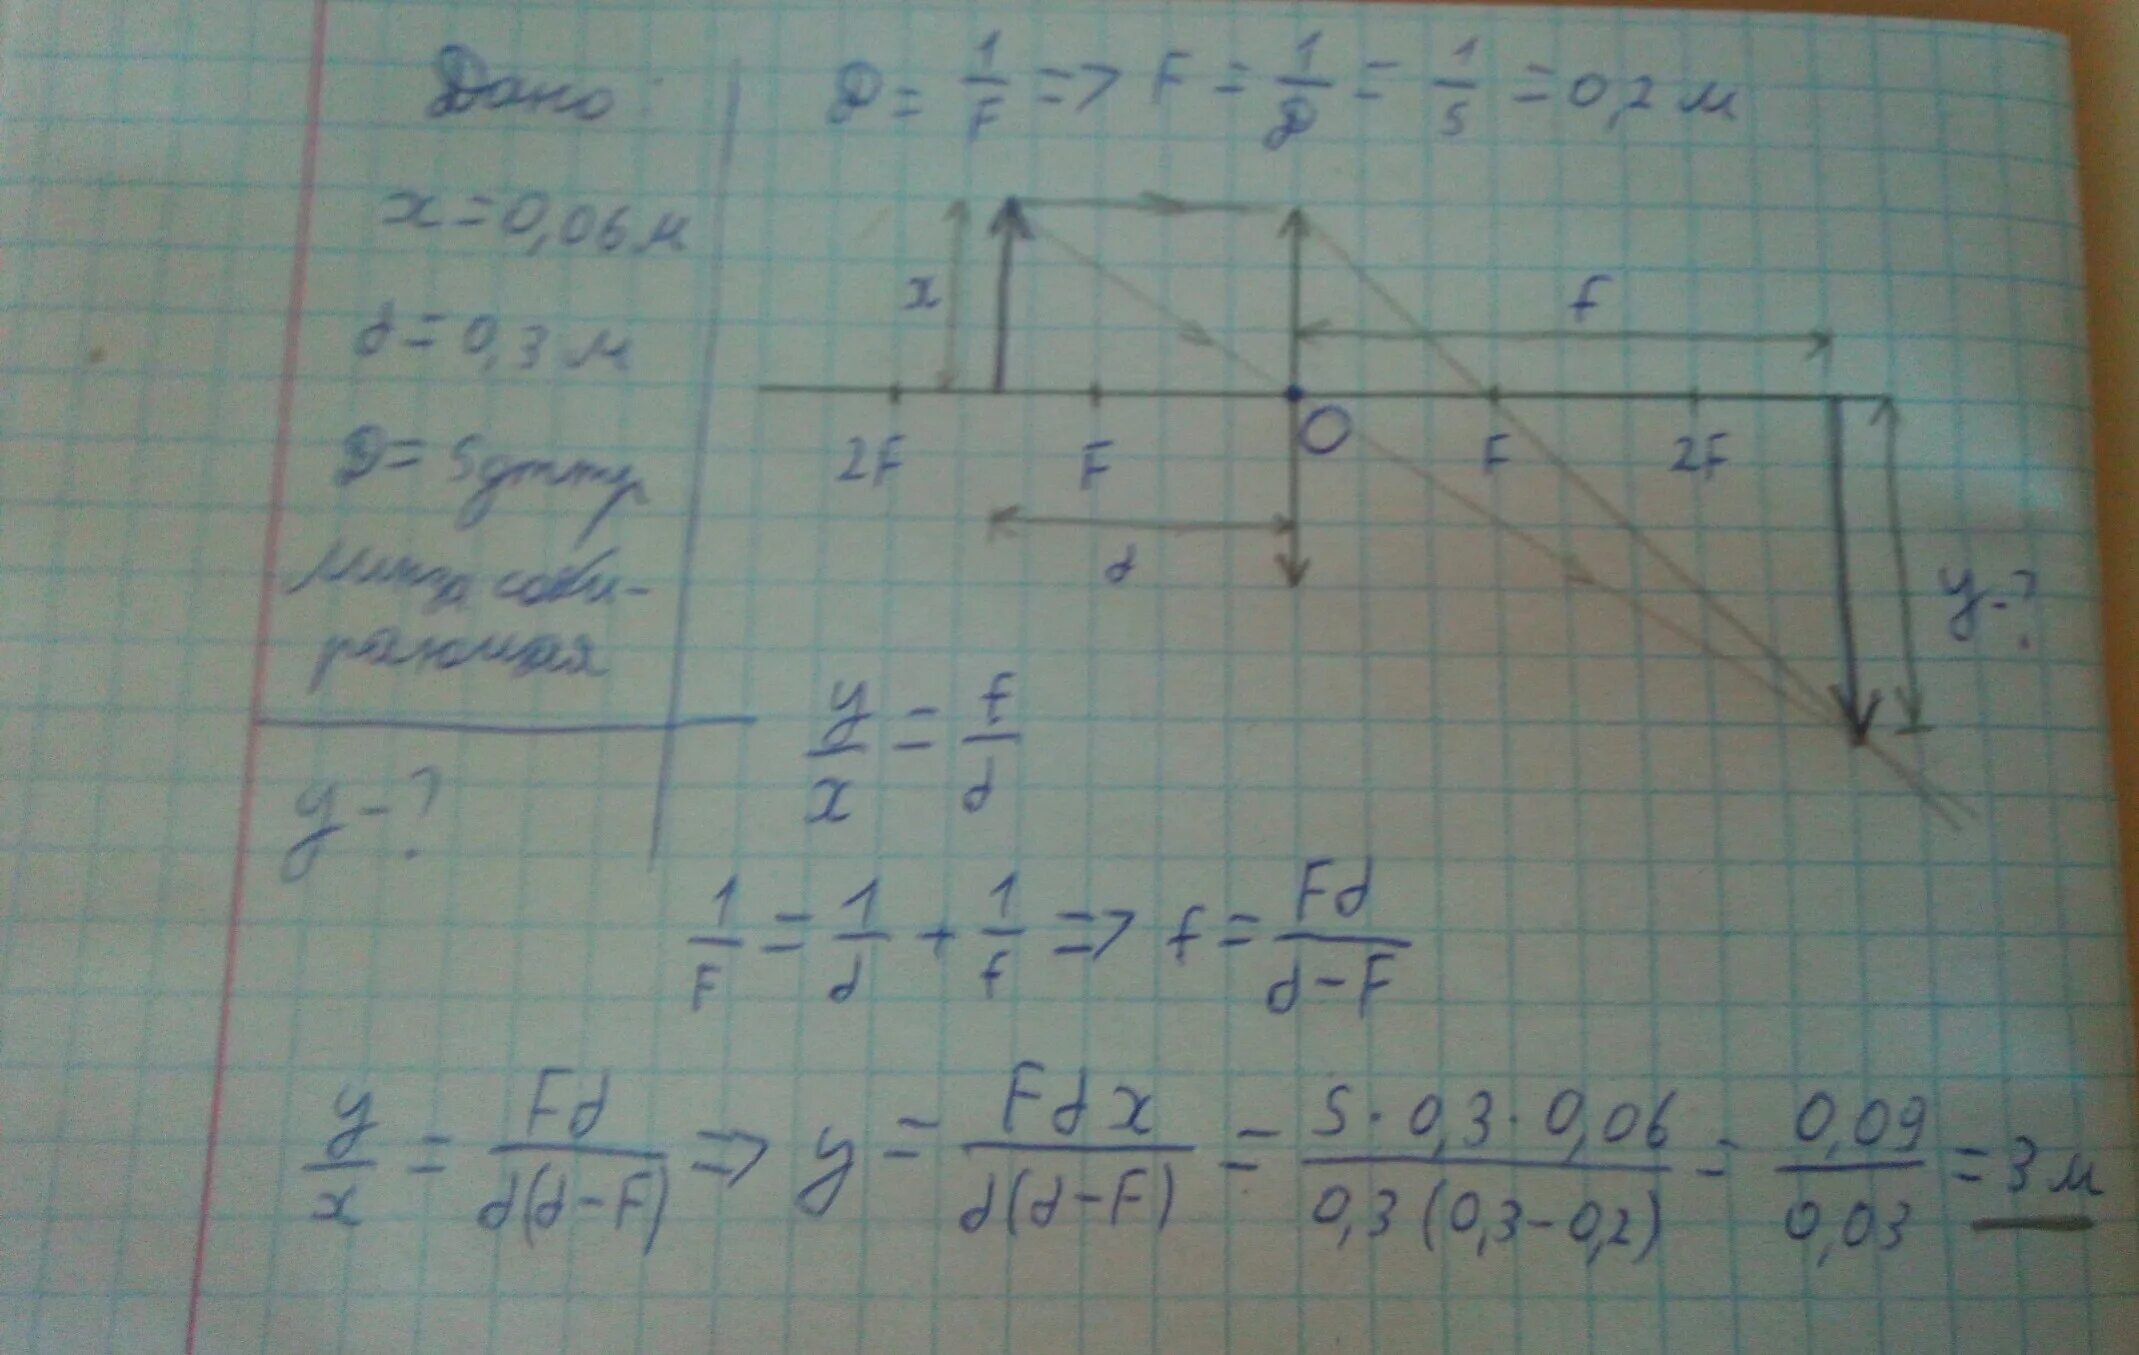 Дано:
x = 0,06 м
d = 0,3 м
D = 5 дптр
Линза соби-
рающая
y - ?
D = 1/F => F = 1/D = 1/5 = 0,2 м
x
f
2F F O F 2F
d
y - ?
y/x = f/d
1/F = 1/d + 1/f => f = Fd/(d-F)
y/x = Fd/(d(d-F)) => y = Fdx/(d(d-F)) = 5·0,3·0,06/(0,3(0,3-0,2)) = 0,09/0,03 = 3 м